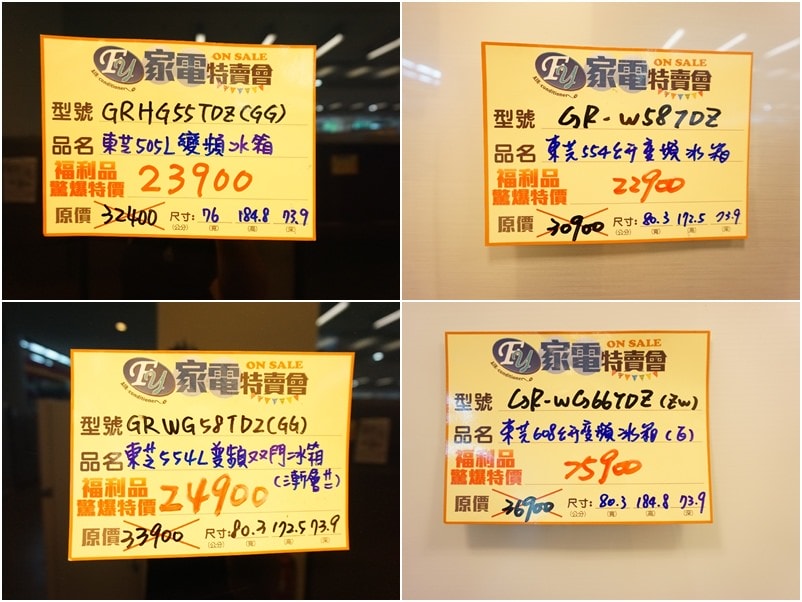 FY 家電特賣會 ON SALE
Air conditioner
型號 GRHG55TDZ(GG)
品名 東芝505L變頻冰箱
福利品
驚爆特價 23900
原價 32400 尺寸: 76 184.8 73.9
(公分) (寬) (高) (深)
FY 家電特賣會 ON SALE
Air conditioner
型號 GR-W58TDZ
品名 東芝554公升變頻冰箱
福利品
驚爆特價 22900
原價 30900 尺寸: 80.3 172.5 73.9
(公分) (寬) (高) (深)
FY 家電特賣會 ON SALE
Air conditioner
型號 GRWG58TDZ(GG)
品名 東芝554L變頻双門冰箱
(漸層
福利品
驚爆特價 24900
原價 33900 尺寸: 80.3 172.5 73.9
(公分) (寬) (高) (深)
FY 家電特賣會 ON SALE
Air conditioner
型號 GR-WG66TDZ(ZW)
品名 東芝608公升變頻冰箱(白)
福利品
驚爆特價 25900
原價 36900 尺寸: 80.3 184.8 73.9
(公分) (寬) (高) (深)